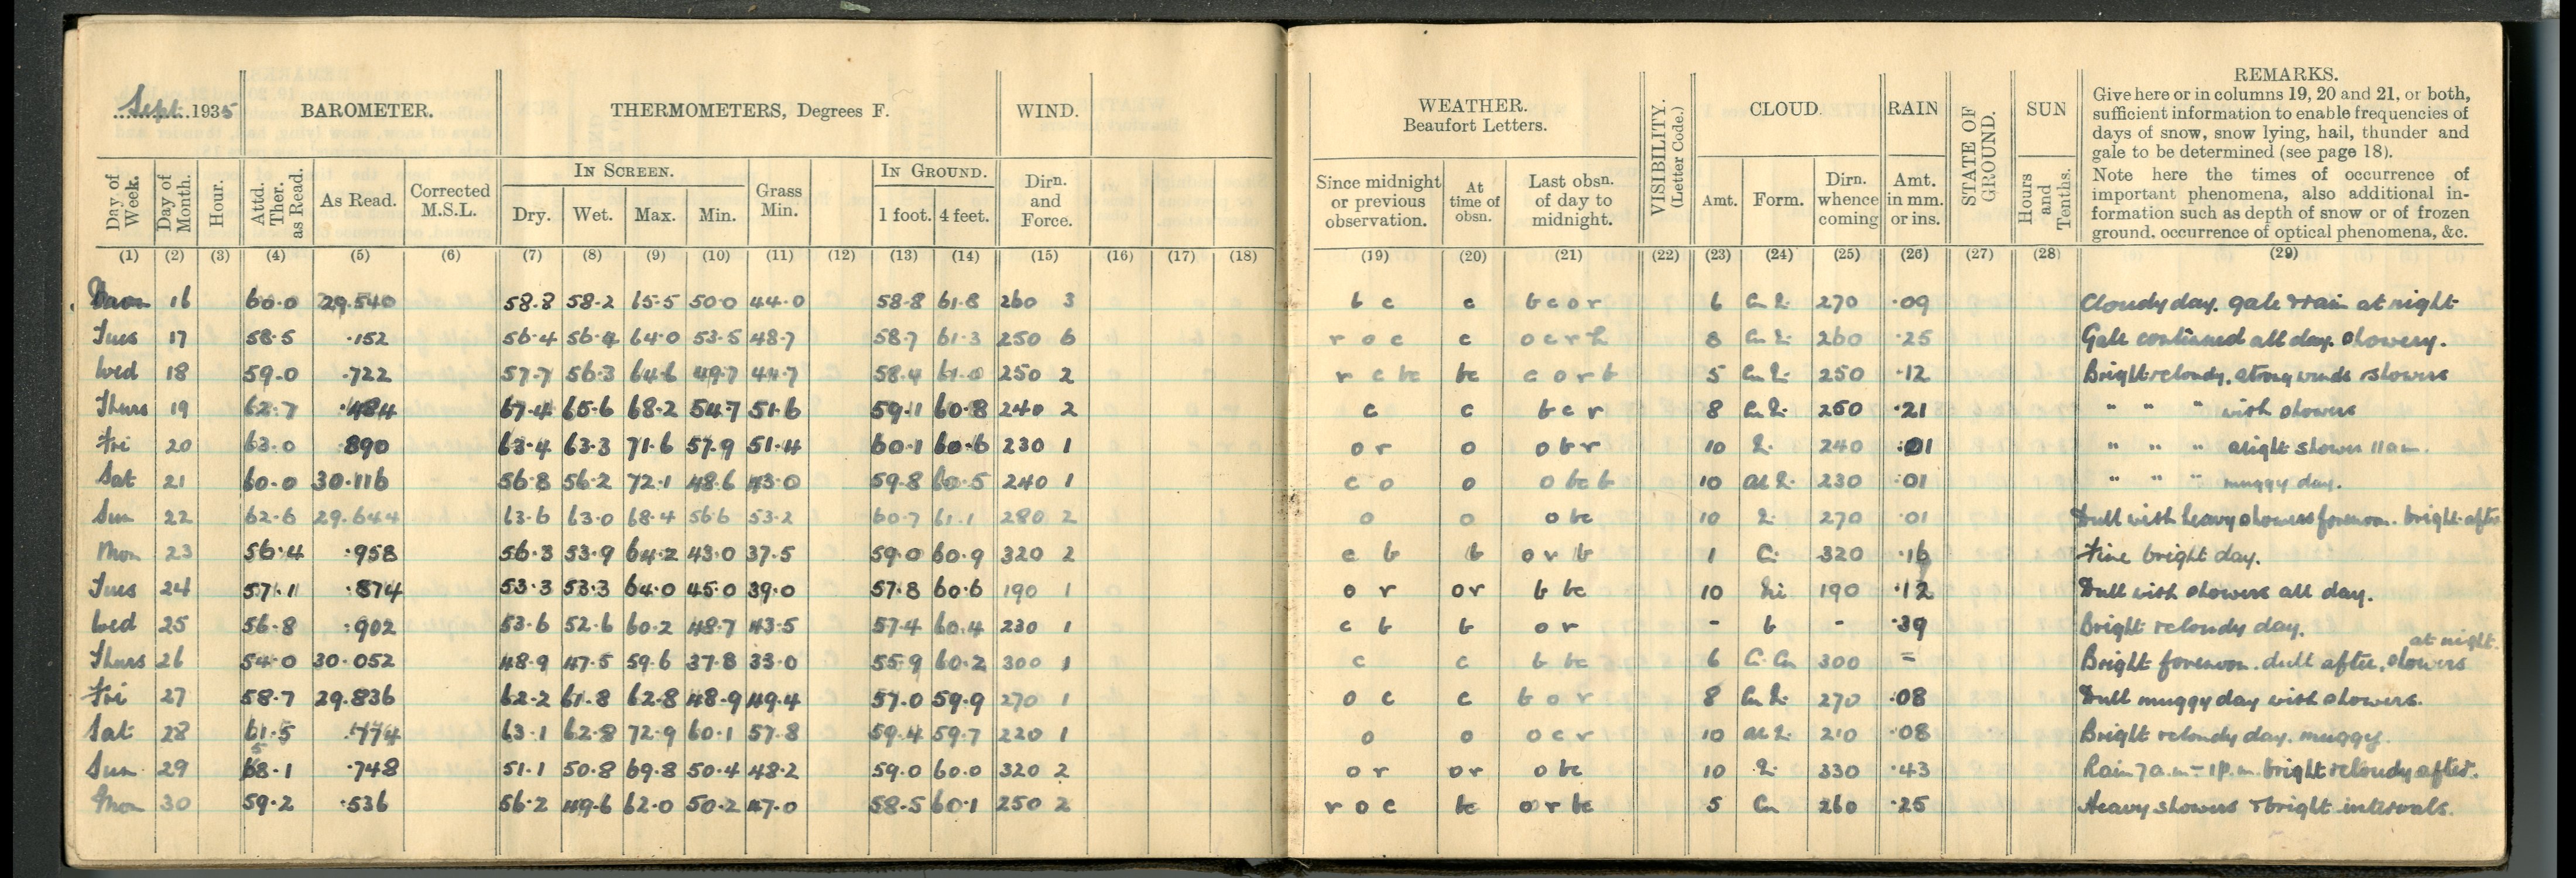 Sept. 1935
BAROMETER.
THERMOMETERS, Degrees F.
WIND.
WEATHER.
Beaufort Letters.
VISIBILITY.
(Letter Code.)
CLOUD
RAIN
STATE OF
GROUND.
SUN
REMARKS.
Give here or in columns 19, 20 and 21, or both,
sufficient information to enable frequencies of
days of snow, snow lying, hail, thunder and
gale to be determined (see page 18).
Note here the times of occurrence of
important phenomena, also additional in-
formation such as depth of snow or of frozen
ground, occurrence of optical phenomena, &c.
Day of Week.
Day of Month.
Hour.
Attd. Ther. as Read.
As Read.
Corrected M.S.L.
IN SCREEN.
Dry. Wet. Max. Min.
Grass Min.
IN GROUND.
1 foot. 4 feet.
Dirn. and Force.
Since midnight or previous observation.
At time of obsn.
Last obsn. of day to midnight.
Amt. Form. Dirn. whence coming
Amt. in mm. or ins.
Hours and Tenths.
(1) (2) (3) (4) (5) (6) (7) (8) (9) (10) (11) (12) (13) (14) (15) (16) (17) (18) (19) (20) (21) (22) (23) (24) (25) (26) (27) (28) (29)
16 60.0 29.540 58.8 58.2 65.5 50.0 44.0 58.8 61.8 260 3 b c c b c o r 6 270 .09 Cloudy day. gale & rain at night
Tues 17 58.5 .152 56.4 56.4 64.0 53.5 48.7 58.7 61.3 250 6 r o c c o c r 8 260 .25 Gale continued all day. showery.
Wed 18 59.0 .722 57.7 56.3 64.6 49.7 44.7 58.4 61.0 250 2 r c bc bc c o r b 5 250 .12 Bright & cloudy. strong winds & showers
Thurs 19 62.7 .484 67.4 65.6 68.2 54.7 51.6 59.1 60.8 240 2 c c b c r 8 250 .21 " " " with showers
Fri 20 63.0 890 63.4 63.3 71.6 57.9 51.4 60.1 60.6 230 1 o r o o b r 10 240 .01 " " " slight shower 11 am.
Sat 21 60.0 30.116 56.8 56.2 72.1 48.6 43.0 59.8 60.5 240 1 c o o o bc b 10 230 .01 " " " muggy day.
Sun 22 62.6 29.644 63.6 63.0 68.4 56.6 53.2 60.7 61.1 280 2 o o o bc 10 270 .01 Dull with heavy showers forenoon. bright after
Mon 23 56.4 .958 56.3 53.9 64.2 43.0 37.5 59.0 60.9 320 2 c b b o r b 1 Ci 320 .16 Fine bright day.
Tues 24 57.1 .874 53.3 53.3 64.0 45.0 39.0 57.8 60.6 190 1 o r or b bc 10 190 .12 Dull with showers all day.
Wed 25 56.8 .902 53.6 52.6 60.2 48.7 43.5 57.4 60.4 230 1 c b b o r - b - .39 Bright & cloudy day.
Thurs 26 54.0 30.052 48.9 47.5 59.6 37.8 33.0 55.9 60.2 300 1 c c b bc 6 Ci Cu 300 = Bright forenoon. dull after, showers at night.
Fri 27 58.7 29.836 62.2 61.8 62.8 48.9 49.4 57.0 59.9 270 1 o c c b o r 8 270 .08 Dull muggy day with showers.
Sat 28 61.5 .774 63.1 62.8 72.9 60.1 57.8 59.4 59.7 220 1 o o o c r 10 210 .08 Bright & cloudy day. muggy.
Sun 29 58.1 .748 51.1 50.8 69.8 50.4 48.2 59.0 60.0 320 2 o r or o bc 10 330 .43 Rain 7 a.m - 1 p.m. bright & cloudy after.
Mon 30 59.2 .536 56.2 49.6 62.0 50.2 47.0 58.5 60.1 250 2 r o c bc o r bc 5 Cu 260 .25 Heavy showers & bright intervals.